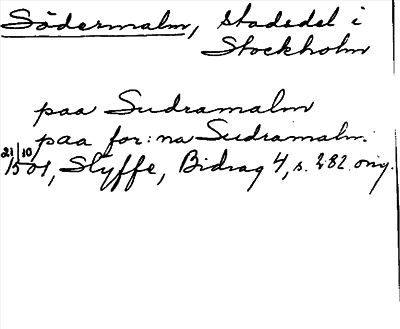 Södermalm, stadsdel i
Stockholm
paa Sudramalm
paa for:na Sudramalm.
21/10 1501, Styffe, Bidrag 4, s. 282. orig.